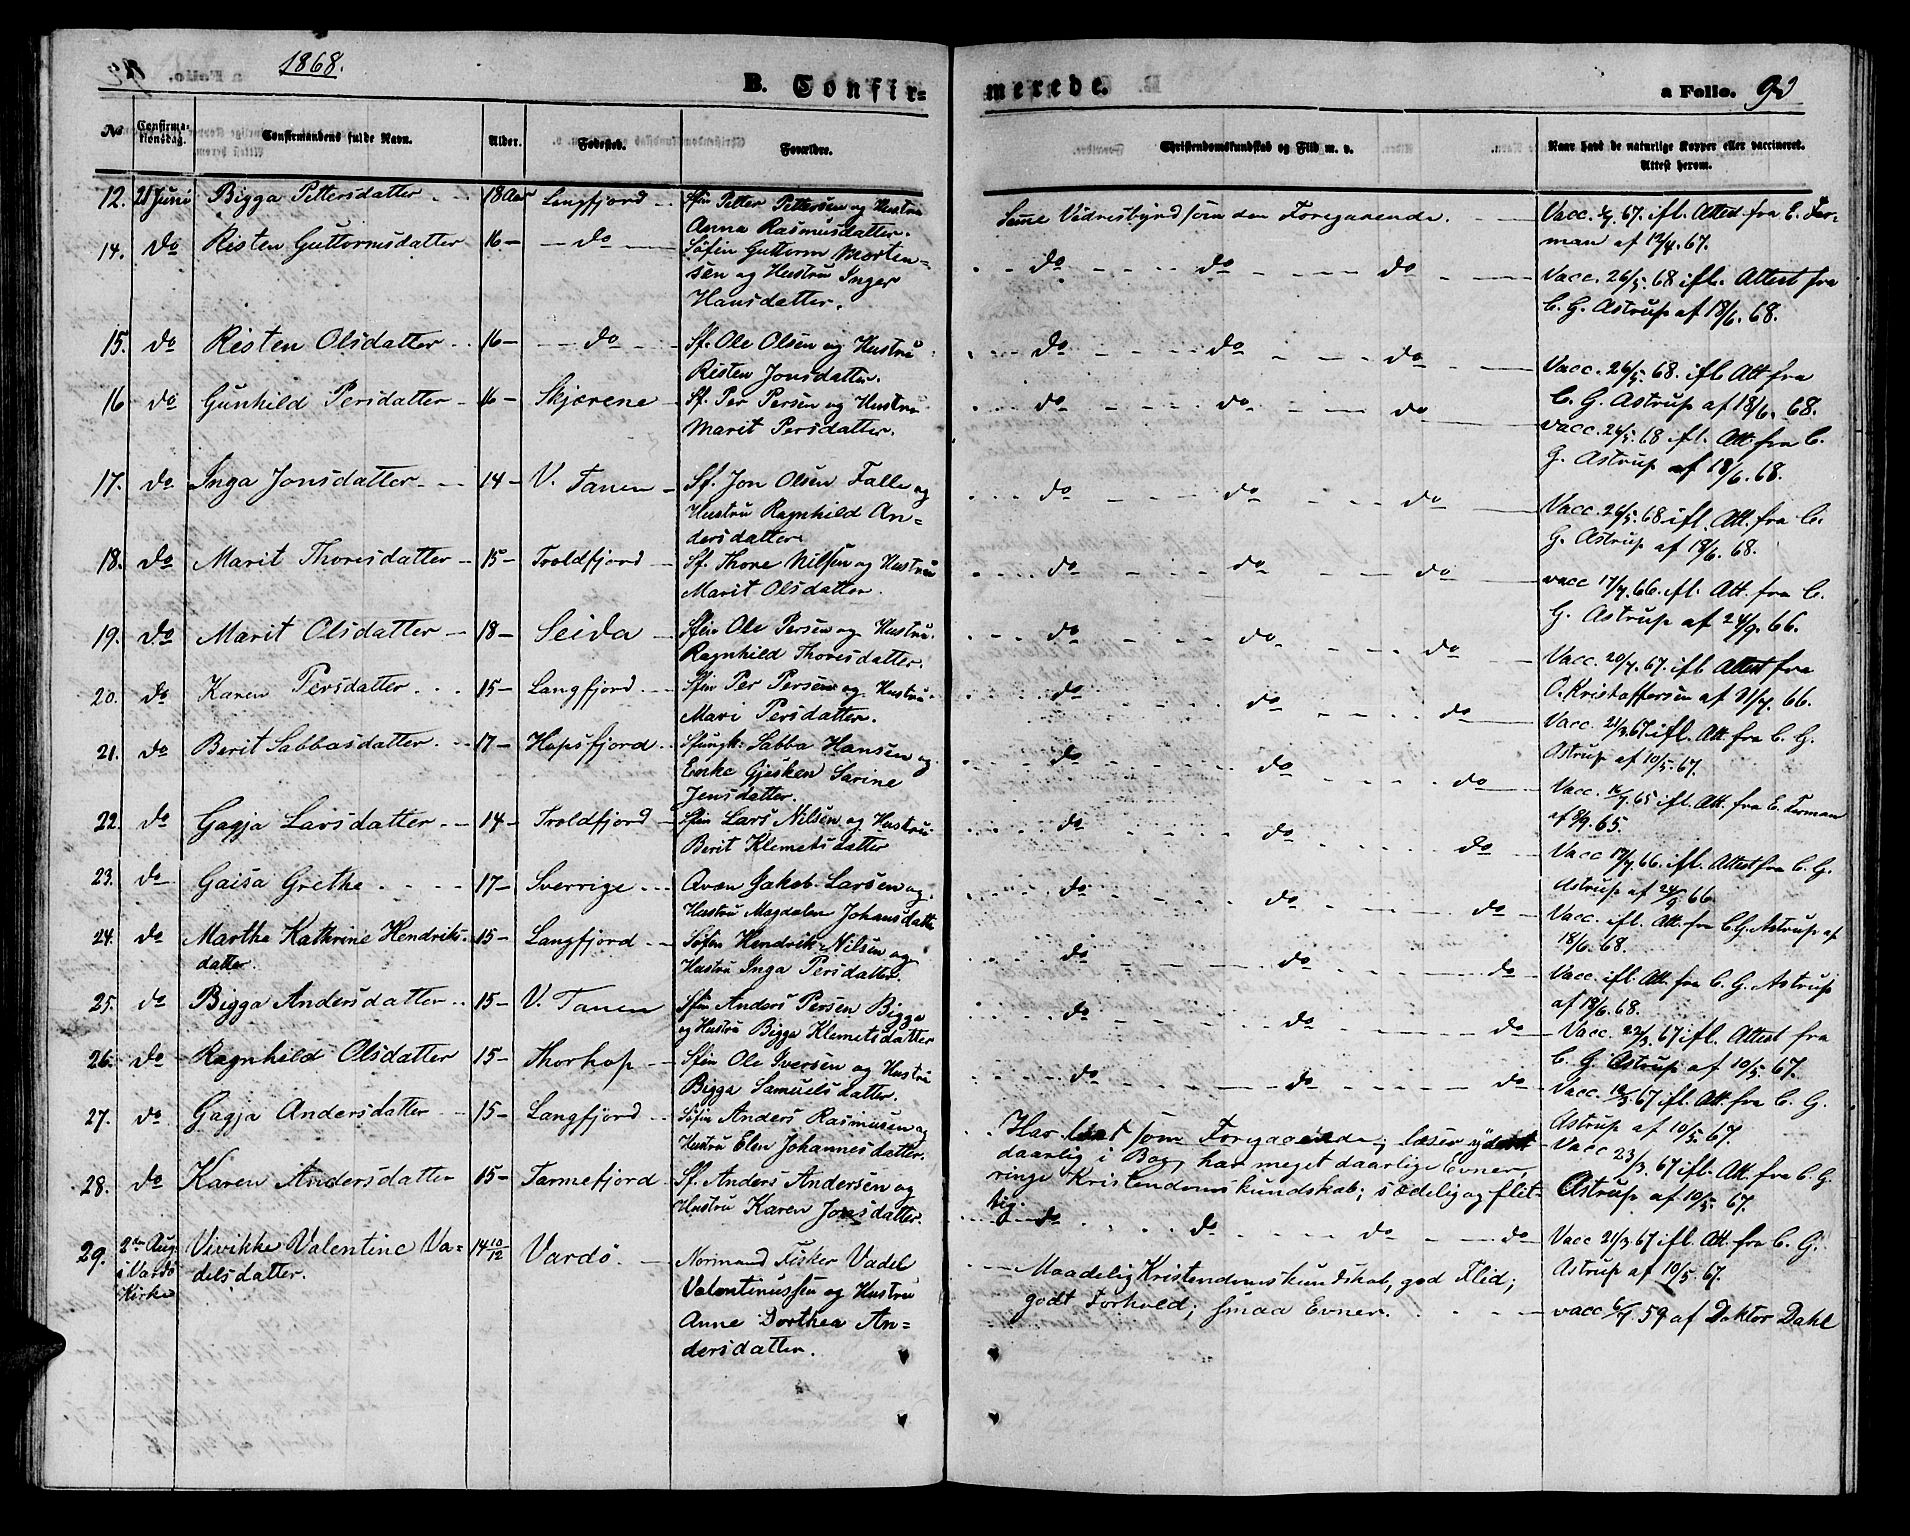 1868.
B. Confir=
merede.
a Folio. 93
No
Confirma-
tionsdag.
Confirmandens fulde Navn.
Alder.
Fødested.
Forældre.
Christendomskundskab og Flid m. v.
Naar havt de naturlige Kopper eller vaccineret.
Attest herom.
12. 21 Juni Bigga Pettersdatter 18 Aar Langfjord Sfin Petter Pettersen og Hustru
Anna Rasmusdatter.
Samme Vidnesbyrd som den Foregaaende.
Vacc. 67. ifl. Attest fra E. For-
man af 12/4. 67.
14. do Risten Guttormsdatter 16 - do Søfin Guttorm Morten-
sen og Hustru Inger
Hansdatter.
do do do
Vacc. 26/5. 68 ifl. Attest fra
C. G. Astrup af 18/6. 68.
15. do Risten Olsdatter 16 - do Sf. Ole Olsen og Hustru
Risten Jonsdatter.
do do do
Vacc. 26/5. 68. ifl. Att fra
C. G. Astrup af 18/6. 68.
16 do Gunhild Persdatter 16 - Skjærene Sf. Per Persen og Hustru
Marit Persdatter.
do do do
vacc. 26/5. 68 ifl. Att. fra C.
G. Astrup af 18/6. 68.
17. do Inga Jonsdatter 14 - V. Tanen Sf. Jon Olsen Falle og
Hustru Ragnhild An=
dersdatter
do do do
Vacc. 26/5. 68 ifl. Att. fra C.
G. Astrup af 18/6. 68.
18. do Marit Thoresdatter 15 - Troldfjord Sf. Thore Nilsen og Hustru
Marit Olsdatter.
do do do
vacc 17/7. 66. ifl. Att. fra C.
G. Astrup af 24/9. 66.
19. do Marit Olsdatter 18 - Seida Sfin Ole Persen og Hustru
Ragnhild Thoresdatter.
do do do
Vacc. 20/7. 67. ifl. Attest fra
O. Kristoffersen af 21/7. 66.
20. do Karen Persdatter 15 - Langfjord Sfin Per Persen og Hustru
Mari Persdatter.
do do do
Vacc. 21/3. 67 ifl. Att. fra C. G.
Astrup af 10/5. 67.
21. do Berit Sabbasdatter 17 - Hopsfjord Sfungk: Sabba Hansen og
Enke Gjesken Sarine
Jensdatter.
do do do
Vacc. 65 ifl. Att. fra E. Forman
af 8/9. 65.
22. do Gagja Larsdatter 14 - Troldfjord Sfin Lars Nilsen og Hustru
Berit Klemetsdatter
do do do
Vacc 17/7. 66. ifl. Attest fra C. G.
Astrup af 24/9 66
23. do Gaisa Grethe 17 - Sverrige Qvæn Jakob Larsen og
Hustru Magdalen Johansdatt
do do do
Vacc. ifl. Att. fra C. G. Astrup af
18/6. 68.
24. do Marthe Kathrine Hendriks- 15 - Langfjord Søfin Hendrik Nilsen og
datter. Hustru Inga Persdatter.
do do do
Vacc. ifl. Att. fra C. G. Astrup
af 18/6. 68.
25. do Bigga Andersdatter 15 - V. Tanen Sfin Anders Persen Bigga
og Hustru Bigga Klemetsdatter
do do do
Vacc. 22/3. 67 ifl. Attest fra
C. G. Astrup af 10/5. 67.
26. do Ragnhild Olsdatter 15 - Thorhop Sfin Ole Iversen og Hustru
Bigga Samuelsdatter.
do do do
Vacc. 67 ifl. Att. fra C. G.
Astrup af 10/5. 67.
27. do Gagja Andersdatter 15 - Langfjord Søfin Anders Rasmusen og
Hustru Elen Johannesdatter.
Har læst som Foregaaende; læser yderst
daarlig i Bog, har meget daarlige Evner,
ringe Kristendomskundskab; sædelig og flit-
tig.
Vacc 23/3. 67 ifl. Att. fra C. G.
Astrup af 10/5. 67.
28. do Karen Andersdatter 15 - Tarmefjord Sf. Anders Andersen og
Hustru Karen Jonsdatter.
do do do do
Vacc 21/3 67 ifl. Att. fra C. G.
Astrup af 10/5. 67.
29. 2den Aug. Vivikke Valentine Va= 14 10/12 Vardö. Normand Fisker Vadel
i Vardö delsdatter. Valentinussen og Hustru
Kirke Anne Dorthea An=
dersdatter.
Maadelig Kristendomskundskab, god Flid;
godt Forhold; smaa Evner.
vacc 6/7. 59 af Doktor Dahl